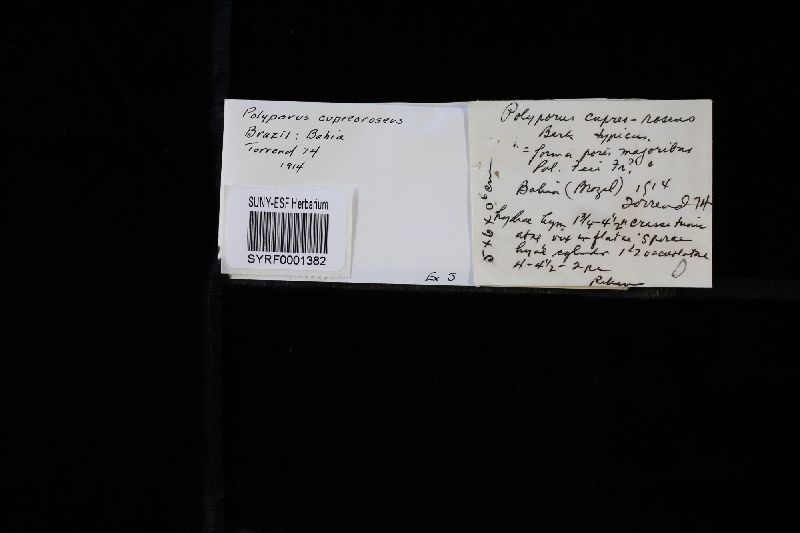 Polyporus cupreoroseus
Brazil: Bahia
Torrend 74
1914
SUNY-ESF Herbarium
SYRF0001382
Ex J
Polyporus cupreo-roseus
Berk typicus.
"= forma poris majoribus
Pol. Feei Fr."
Bahia (Brazil) 1914
Torrend 74
5x6x0.6 cm
hyphae hym 1¾-4½
atae vix inflatae sporae
hyal cylindr 1-2 vacuolatae
4-4½-2 µ